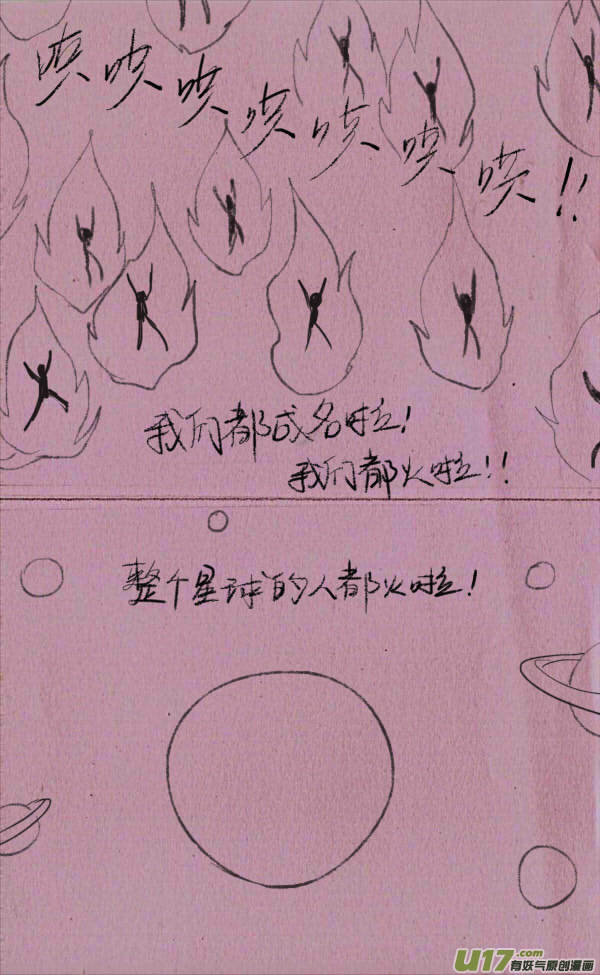 哎哎哎哎哎哎哎!!
我们都成名啦!
我们都火啦!!
整个星球的人都火啦!
U17.com
有妖气原创漫画